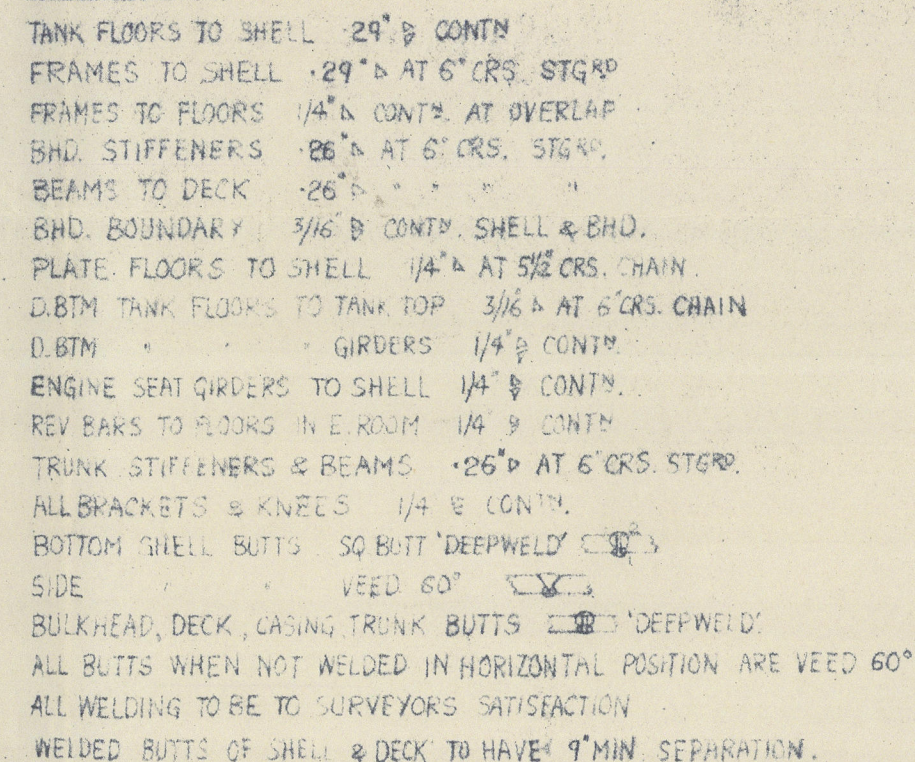 TANK FLOORS TO SHELL ·29" CONTN
FRAMES TO SHELL ·29" AT 6" CRS. STGRD
FRAMES TO FLOORS 1/4" CONTN. AT OVERLAP
BHD. STIFFENERS ·26" AT 6" CRS. STGRD.
BEAMS TO DECK ·26" " " " "
BHD. BOUNDARY 3/16" CONTN. SHELL & BHD.
PLATE FLOORS TO SHELL 1/4" AT 5 1/2" CRS. CHAIN.
D.BTM TANK FLOORS TO TANK TOP 3/16" AT 6" CRS. CHAIN
D.BTM " " " GIRDERS 1/4" CONTN.
ENGINE SEAT GIRDERS TO SHELL 1/4" CONTN.
REV BARS TO FLOORS IN E. ROOM 1/4" CONTN
TRUNK STIFFENERS & BEAMS ·26" AT 6" CRS. STGRD.
ALL BRACKETS & KNEES 1/4 CONTN.
BOTTOM SHELL BUTTS SQ. BUTT 'DEEPWELD'
SIDE " " VEED 60°
BULKHEAD, DECK, CASING, TRUNK BUTTS 'DEEPWELD'.
ALL BUTTS WHEN NOT WELDED IN HORIZONTAL POSITION ARE VEED 60°
ALL WELDING TO BE TO SURVEYORS SATISFACTION
WELDED BUTTS OF SHELL & DECK TO HAVE 9" MIN. SEPARATION.